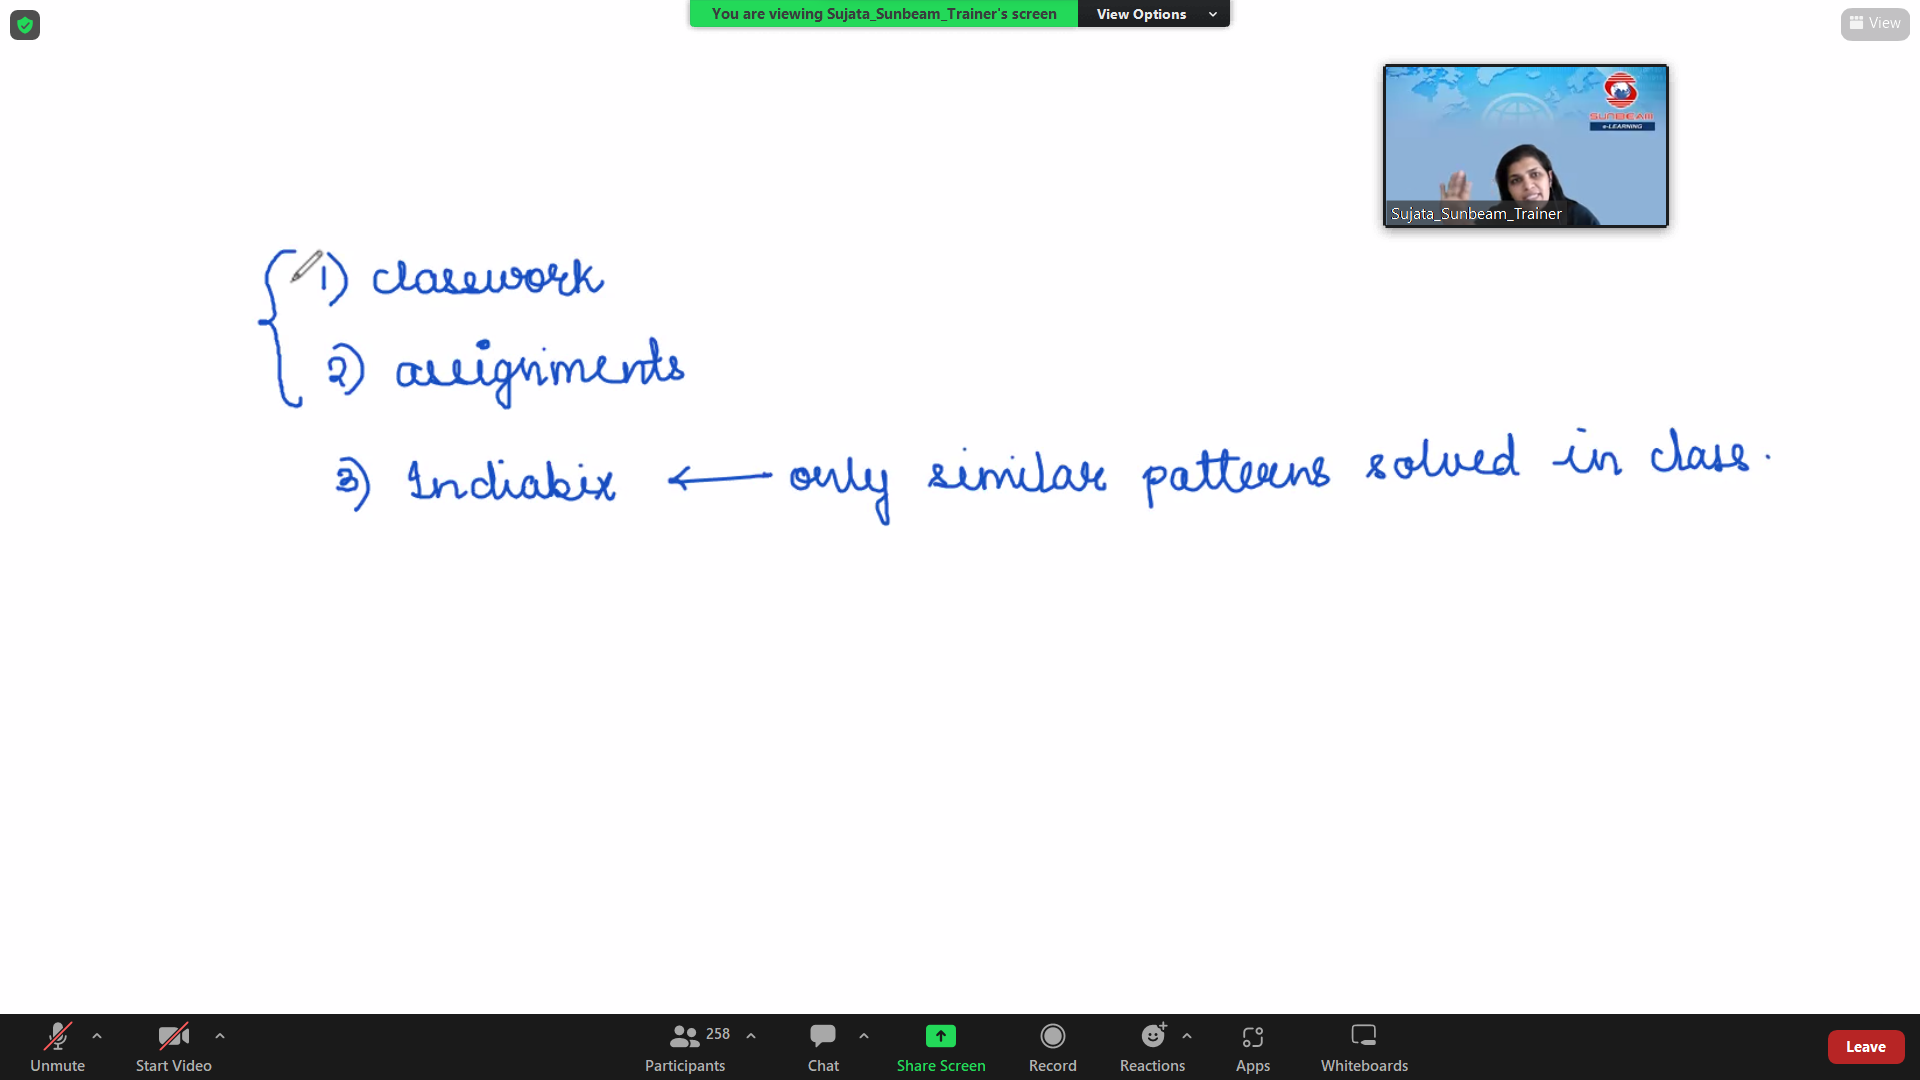 You are viewing Sujata_Sunbeam_Trainer's screen View Options
View
SUNBEAM
e-LEARNING
Sujata_Sunbeam_Trainer
1) classwork
2) assignments
3) Indiabix ← only similar patterns solved in class.
Unmute Start Video Participants 258 Chat Share Screen Record Reactions Apps Whiteboards Leave